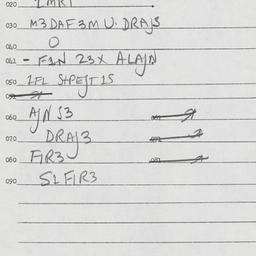 020
030 M3DAF3M U. DRAJS
040 O
041 - FIN 23X ALAJN
050 IFL SHPEJTIS
060 AJN S3
070 DRAJ3
080 FIR3
090 SI FIR3